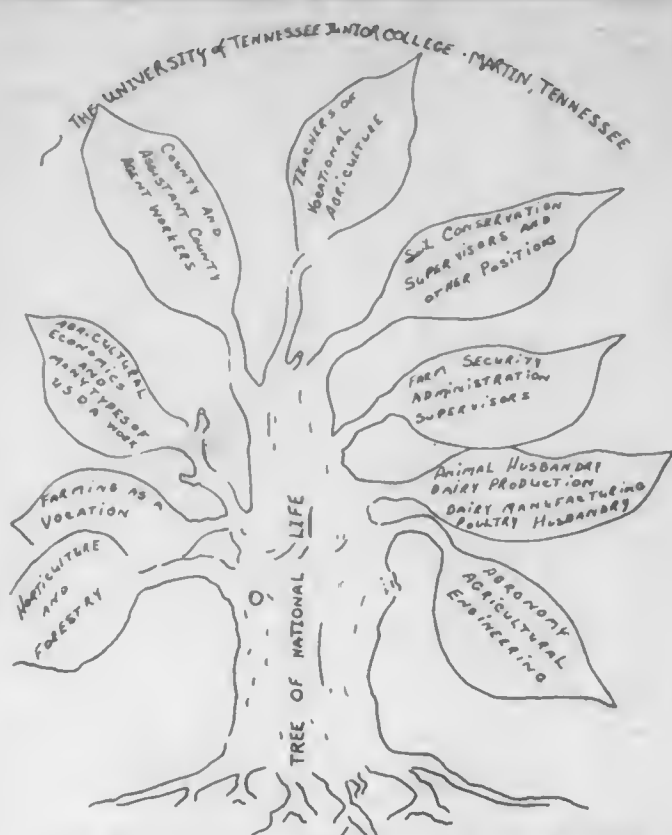 THE UNIVERSITY of TENNESSEE JUNIOR COLLEGE · MARTIN, TENNESSEE
COUNTY AND
ASSISTANT COUNTY
AGENT WORKERS
TEACHERS OF
VOCATIONAL
AGRICULTURE
SOIL CONSERVATION
SUPERVISORS AND
OTHER POSITIONS
AGRICULTURAL
ECONOMICS
AND
MANY TYPES OF
USDA WORK
FARM SECURITY
ADMINISTRATION
SUPERVISORS
FARMING AS A
VOCATION
ANIMAL HUSBANDRY
DAIRY PRODUCTION
DAIRY MANUFACTURING
POULTRY HUSBANDRY
HORTICULTURE
AND
FORESTRY
AGRONOMY
AGRICULTURAL
ENGINEERING
TREE OF NATIONAL LIFE